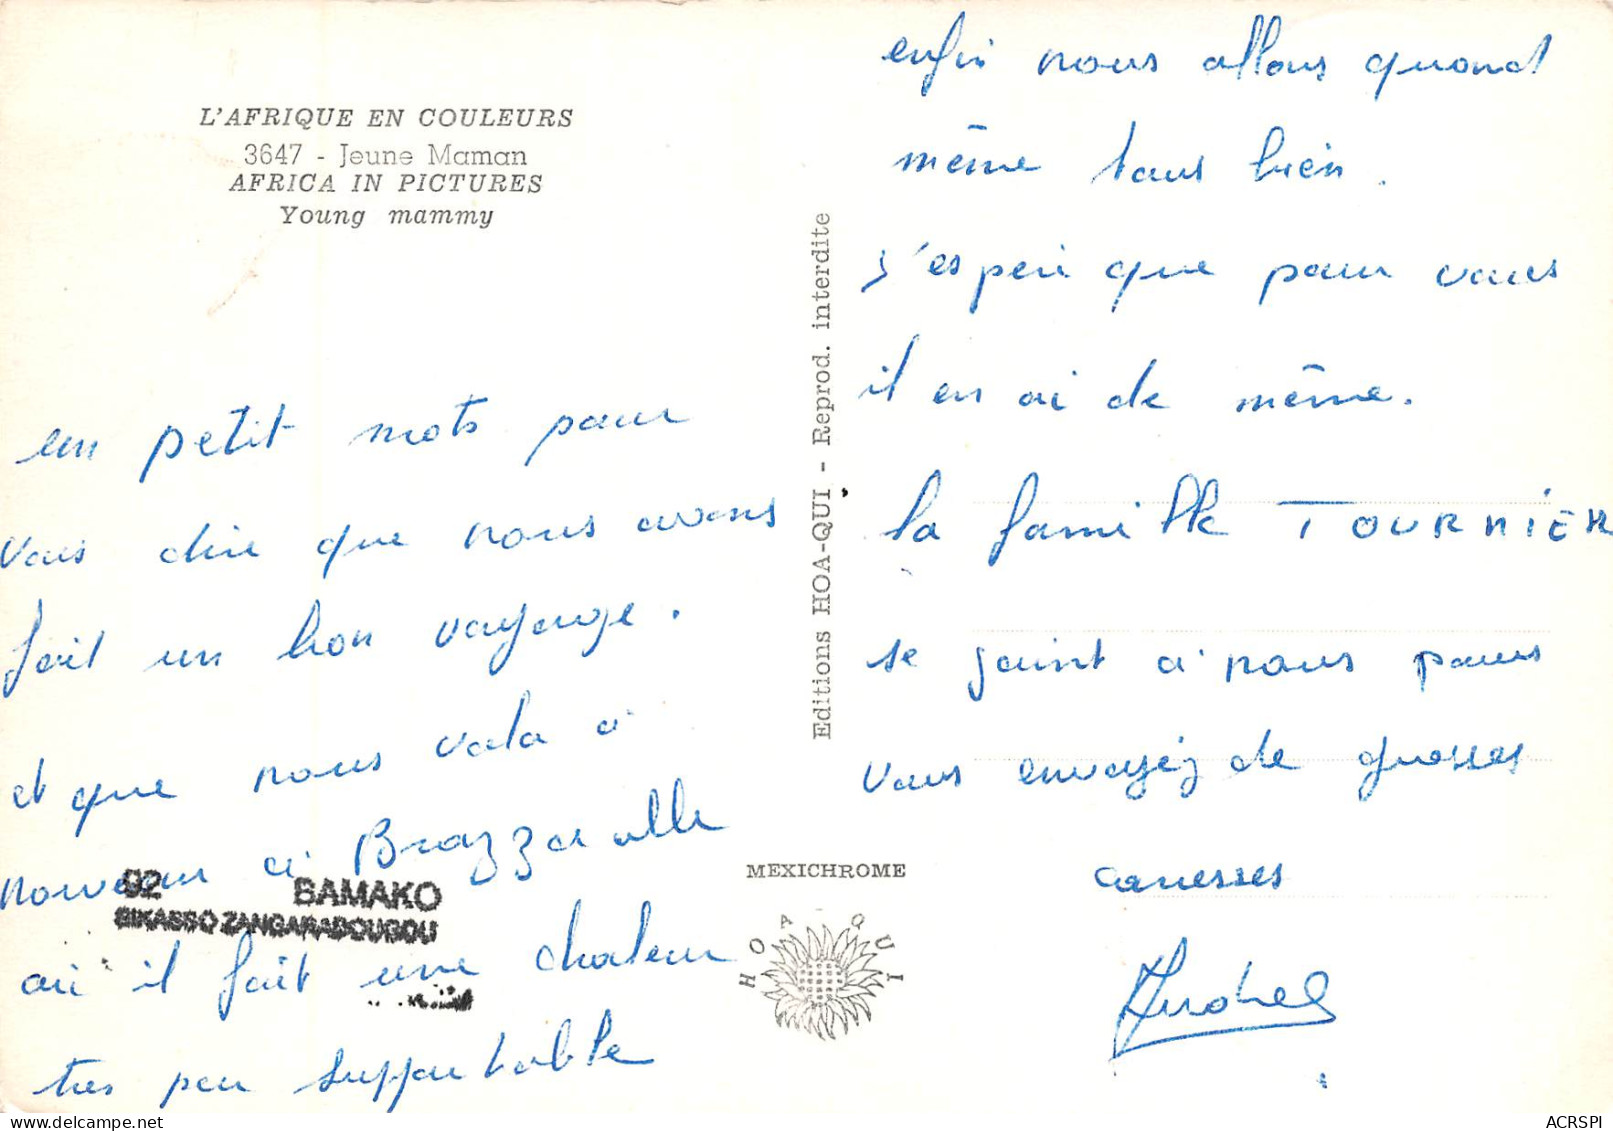 L'AFRIQUE EN COULEURS
3647 - Jeune Maman
AFRICA IN PICTURES
Young mammy
un petit mots pour
vous dire que nous avons
fait un bon voyage.
et que nous voila à
nouveau à Brazzaville
où il fait une chaleur
tres peu supportable
92 BAMAKO
SIKASSO ZANGARADOUGOU
Editions HOA-QUI - Reprod. interdite
MEXICHROME
HOA QUI
enfin nous allons quand
même tous bien.
j'espere que pour vous
il en ai de même.
la famille TOURNIER
se joint a nous pour
vous envoyez de grosses
caresses
ACRSPI